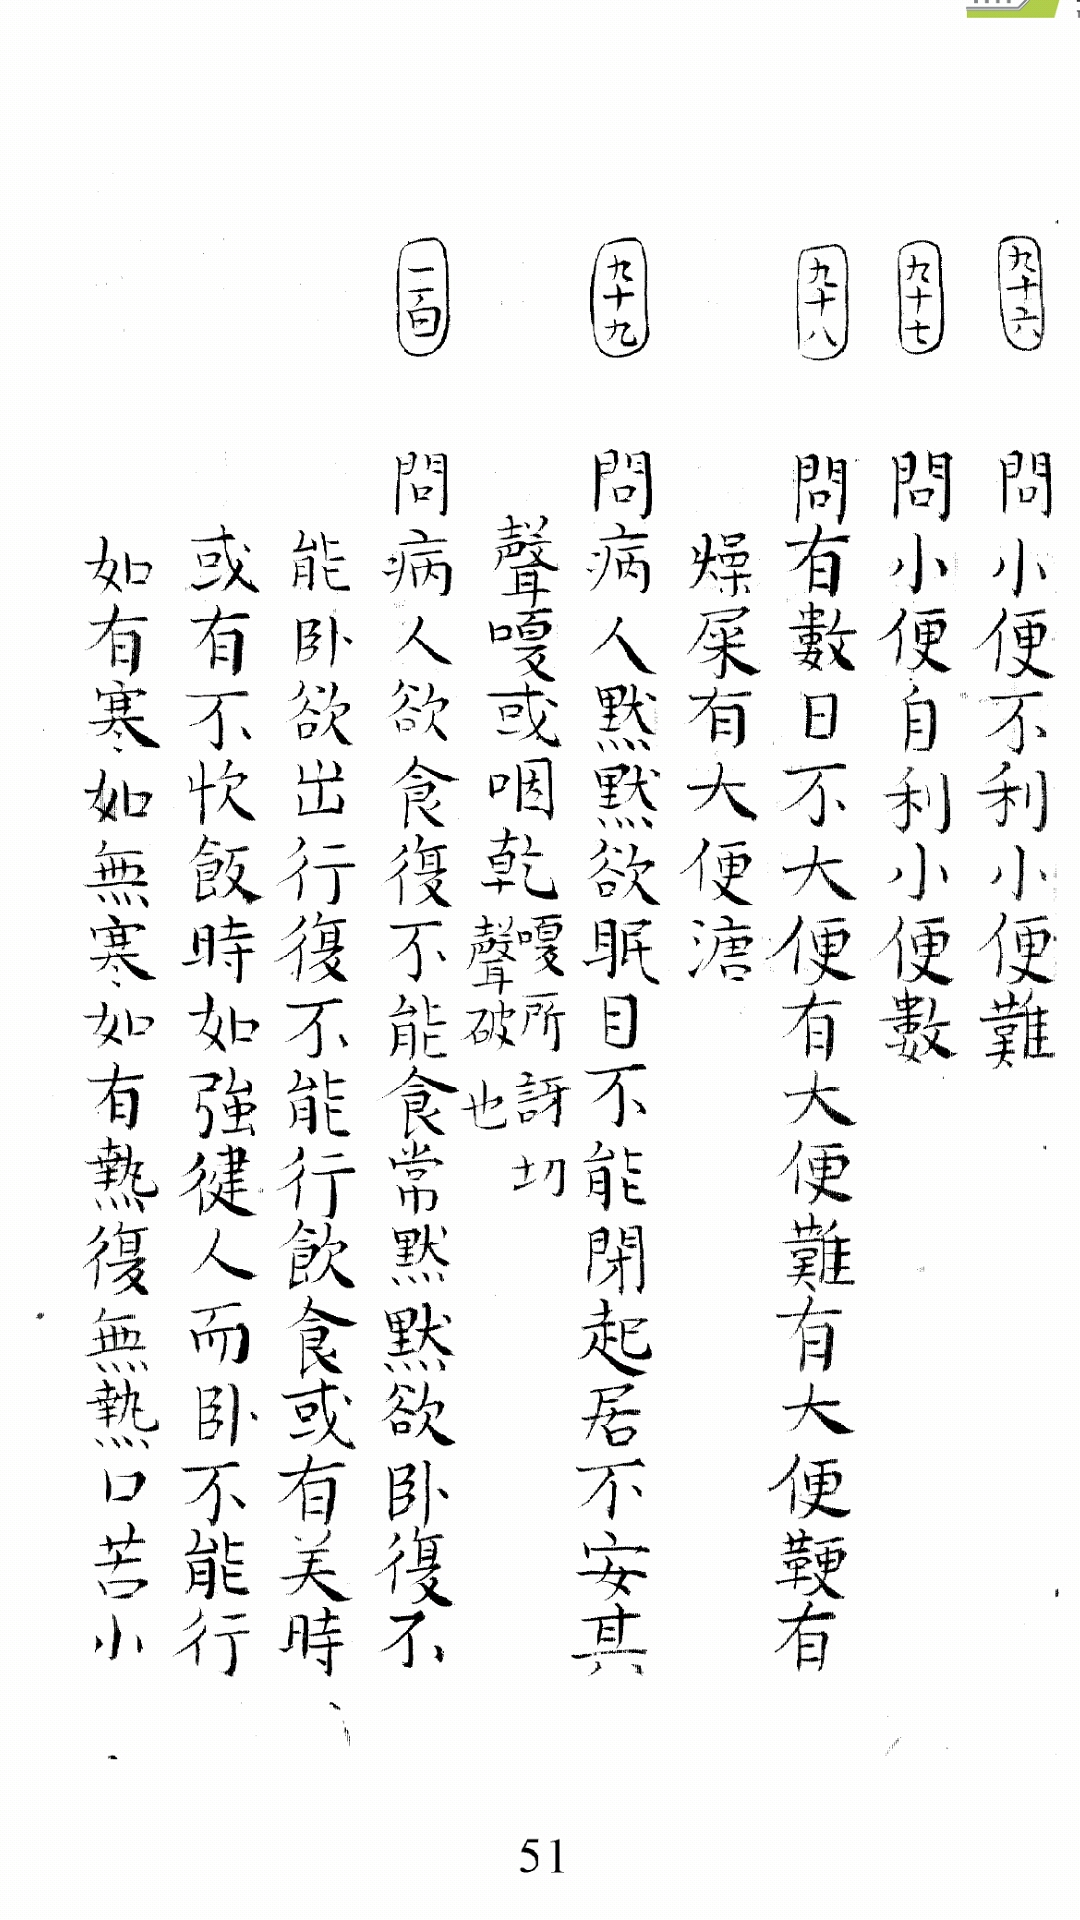 九十六 問小便不利小便難
九十七 問小便自利小便數
九十八 問有數日不大便有大便難有大便鞕有
燥屎有大便溏
九十九 問病人默默欲眠目不能閉起居不安其
聲嗄或咽乾嗄所訝切聲破也
一百 問病人欲食復不能食常默默欲臥復不
能臥欲出行復不能行飲食或有美時
或有不忺飯時如強健人而臥不能行
如有寒如無寒如有熱復無熱口苦小
51